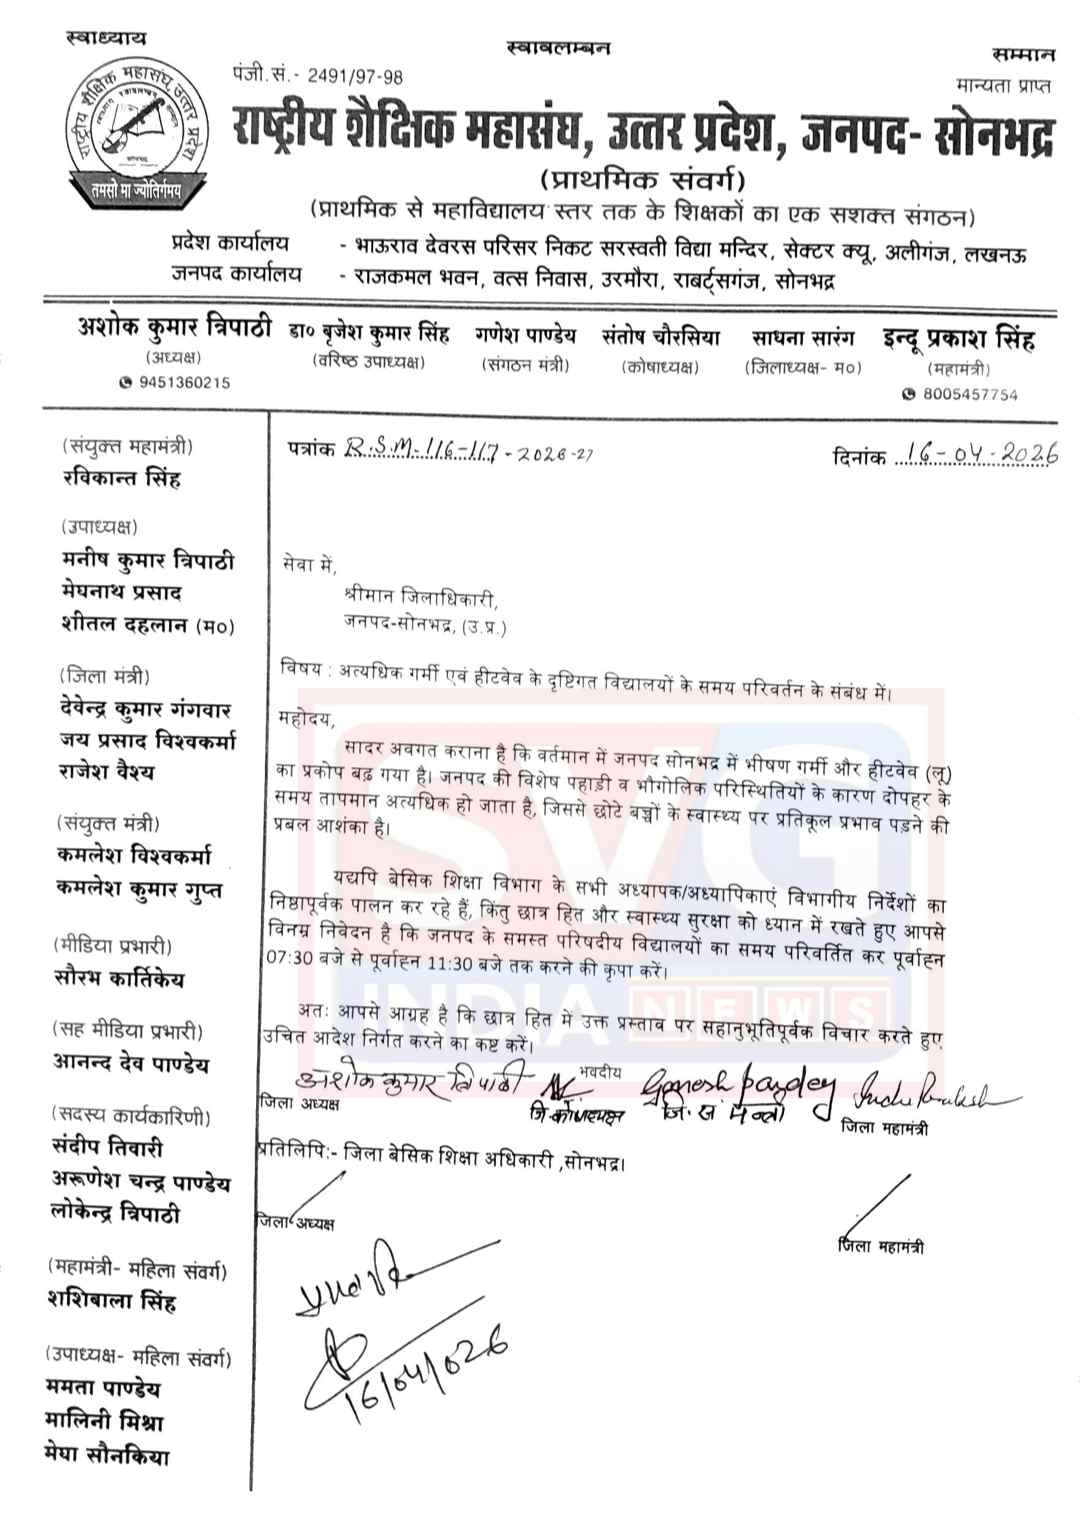 स्वाध्याय
स्वावलम्बन
सम्मान
पंजी.सं.- 2491/97-98
मान्यता प्राप्त
राष्ट्रीय शैक्षिक महासंघ, उत्तर प्रदेश
तमसो मा ज्योतिर्गमय
राष्ट्रीय शैक्षिक महासंघ, उत्तर प्रदेश, जनपद- सोनभद्र
(प्राथमिक संवर्ग)
(प्राथमिक से महाविद्यालय स्तर तक के शिक्षकों का एक सशक्त संगठन)
प्रदेश कार्यालय - भाऊराव देवरस परिसर निकट सरस्वती विद्या मन्दिर, सेक्टर क्यू, अलीगंज, लखनऊ
जनपद कार्यालय - राजकमल भवन, वत्स निवास, उरमौरा, राबर्ट्सगंज, सोनभद्र
अशोक कुमार त्रिपाठी डा० बृजेश कुमार सिंह गणेश पाण्डेय संतोष चौरसिया साधना सारंग इन्दू प्रकाश सिंह
(अध्यक्ष) (वरिष्ठ उपाध्यक्ष) (संगठन मंत्री) (कोषाध्यक्ष) (जिलाध्यक्ष- म०) (महामंत्री)
9451360215
8005457754
(संयुक्त महामंत्री)
रविकान्त सिंह
(उपाध्यक्ष)
मनीष कुमार त्रिपाठी
मेघनाथ प्रसाद
शीतल दहलान (म०)
(जिला मंत्री)
देवेन्द्र कुमार गंगवार
जय प्रसाद विश्वकर्मा
राजेश वैश्य
(संयुक्त मंत्री)
कमलेश विश्वकर्मा
कमलेश कुमार गुप्त
(मीडिया प्रभारी)
सौरभ कार्तिकेय
(सह मीडिया प्रभारी)
आनन्द देव पाण्डेय
(सदस्य कार्यकारिणी)
संदीप तिवारी
अरूणेश चन्द्र पाण्डेय
लोकेन्द्र त्रिपाठी
(महामंत्री- महिला संवर्ग)
शशिबाला सिंह
(उपाध्यक्ष- महिला संवर्ग)
ममता पाण्डेय
मालिनी मिश्रा
मेघा सौनकिया
पत्रांक R.S.M.116-117-2026-27
दिनांक 16-04-2026
सेवा में,
श्रीमान जिलाधिकारी,
जनपद-सोनभद्र, (उ.प्र.)
विषय : अत्यधिक गर्मी एवं हीटवेव के दृष्टिगत विद्यालयों के समय परिवर्तन के संबंध में।
महोदय,
सादर अवगत कराना है कि वर्तमान में जनपद सोनभद्र में भीषण गर्मी और हीटवेव (लू)
का प्रकोप बढ़ गया है। जनपद की विशेष पहाड़ी व भौगोलिक परिस्थितियों के कारण दोपहर के
समय तापमान अत्यधिक हो जाता है, जिससे छोटे बच्चों के स्वास्थ्य पर प्रतिकूल प्रभाव पड़ने की
प्रबल आशंका है।
यद्यपि बेसिक शिक्षा विभाग के सभी अध्यापक/अध्यापिकाएं विभागीय निर्देशों का
निष्ठापूर्वक पालन कर रहे हैं, किंतु छात्र हित और स्वास्थ्य सुरक्षा को ध्यान में रखते हुए आपसे
विनम्र निवेदन है कि जनपद के समस्त परिषदीय विद्यालयों का समय परिवर्तित कर पूर्वाह्न
07:30 बजे से पूर्वाह्न 11:30 बजे तक करने की कृपा करें।
अतः आपसे आग्रह है कि छात्र हित में उक्त प्रस्ताव पर सहानुभूतिपूर्वक विचार करते हुए
उचित आदेश निर्गत करने का कष्ट करें।
SVG
INDIA NEWS
भवदीय
अशोक कुमार त्रिपाठी Ganesh pandey Indu Prakash
जिला अध्यक्ष जि.कोषाध्यक्ष जि.सं.मन्त्री जिला महामंत्री
प्रतिलिपि:- जिला बेसिक शिक्षा अधिकारी ,सोनभद्र।
जिला अध्यक्ष
जिला महामंत्री
16/04/026